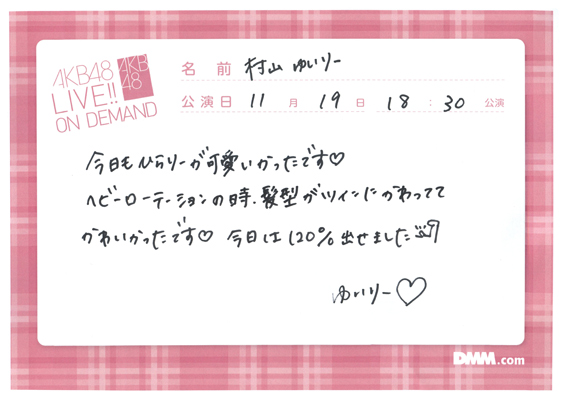 AKB48
LIVE!!
ON DEMAND
AKB
48
名前 村山ゆいりー
公演日 11月19日 18:30公演
今日もひらりーが可愛いかったです♡
ヘビーローテーションの時、髪型がツインにかわってて
かわいかったです♡ 今日は120%出せました
ゆいりー♡
DMM.com